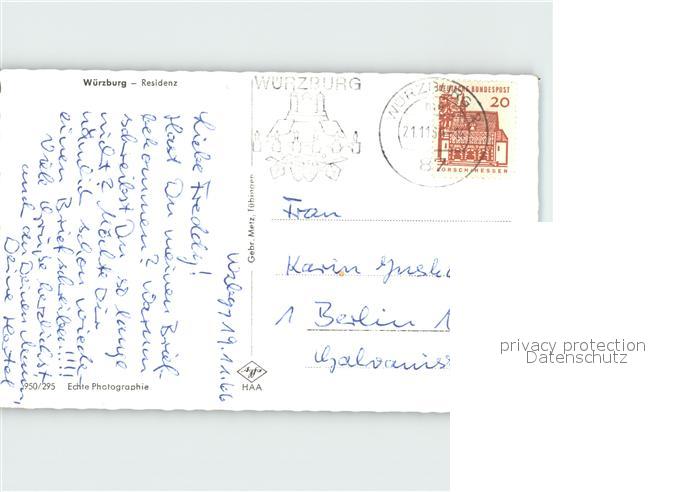 Würzburg – Residenz
Wzbg, 19.11.66
Liebe Freddy!
Hast Du meinen Brief
bekommen? Warum
schreibst Du so lange
nicht? Möchte Dir
nämlich schon wieder
einen Brief schreiben!!!!
Viele Grüße herzlichst
und an Deinen Mann,
Deine
950/295 Echte Photographie
Gebr. Metz, Tübingen
HAA
WÜRZBURG
WÜRZBURG 2
21.11.66
87
DEUTSCHE BUNDESPOST
20
LORSCH/HESSEN
Frau
Karin
1 Berlin 1
privacy protection
Datenschutz